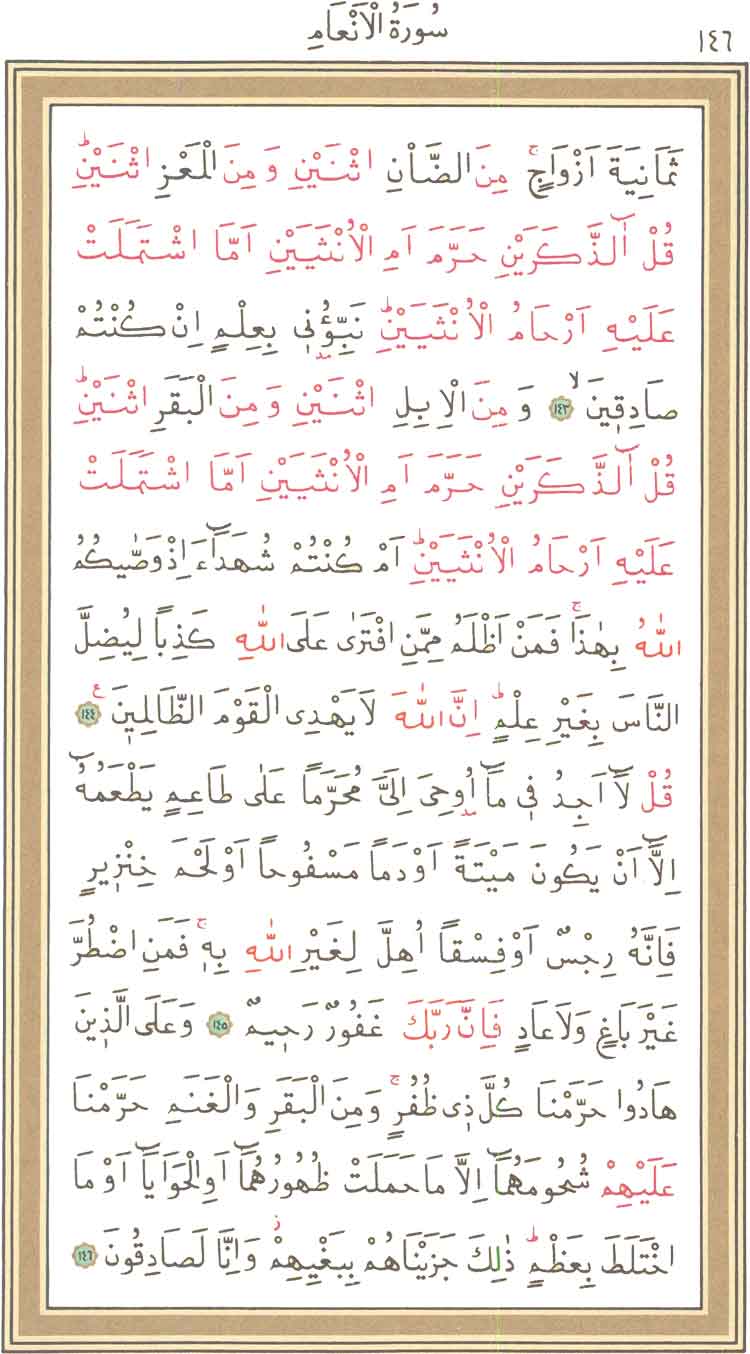 سُورَةُ الْاَنْعَامِ
١٤٦
ثَمَانِيَةَ اَزْوَاجٍۚ مِنَ الضَّاْنِ اثْنَيْنِ وَمِنَ الْمَعْزِ اثْنَيْنِۜ
قُلْ آٰلذَّكَرَيْنِ حَرَّمَ اَمِ الْاُنْثَيَيْنِ اَمَّا اشْتَمَلَتْ
عَلَيْهِ اَرْحَامُ الْاُنْثَيَيْنِۜ نَبِّؤُ۫ن۪ي بِعِلْمٍ اِنْ كُنْتُمْ
صَادِق۪ينَۙ ﴿١٤٣﴾ وَمِنَ الْاِبِلِ اثْنَيْنِ وَمِنَ الْبَقَرِ اثْنَيْنِۜ
قُلْ آٰلذَّكَرَيْنِ حَرَّمَ اَمِ الْاُنْثَيَيْنِ اَمَّا اشْتَمَلَتْ
عَلَيْهِ اَرْحَامُ الْاُنْثَيَيْنِۜ اَمْ كُنْتُمْ شُهَدَٓاءَ اِذْ وَصّٰيكُمُ
اللّٰهُ بِهٰذَاۚ فَمَنْ اَظْلَمُ مِمَّنِ افْتَرٰى عَلَى اللّٰهِ كَذِباً لِيُضِلَّ
النَّاسَ بِغَيْرِ عِلْمٍۜ اِنَّ اللّٰهَ لَا يَهْدِي الْقَوْمَ الظَّالِم۪ينَ۟ ﴿١٤٤﴾
قُلْ لَٓا اَجِدُ ف۪ي مَٓا اُو۫حِيَ اِلَيَّ مُحَرَّماً عَلٰى طَاعِمٍ يَطْعَمُهُٓ
اِلَّٓا اَنْ يَكُونَ مَيْتَةً اَوْ دَماً مَسْفُوحاً اَوْ لَحْمَ خِنْز۪يرٍ
فَاِنَّهُ رِجْسٌ اَوْ فِسْقاً اُهِلَّ لِغَيْرِ اللّٰهِ بِه۪ۚ فَمَنِ اضْطُرَّ
غَيْرَ بَاغٍ وَلَا عَادٍ فَاِنَّ رَبَّكَ غَفُورٌ رَح۪يمٌ ﴿١٤٥﴾ وَعَلَى الَّذ۪ينَ
هَادُوا حَرَّمْنَا كُلَّ ذ۪ي ظُفُرٍۚ وَمِنَ الْبَقَرِ وَالْغَنَمِ حَرَّمْنَا
عَلَيْهِمْ شُحُومَهُمَٓا اِلَّا مَا حَمَلَتْ ظُهُورُهُمَٓا اَوِ الْحَوَايَٓا اَوْ مَا
اخْتَلَطَ بِعَظْمٍۜ ذٰلِكَ جَزَيْنَاهُمْ بِبَغْيِهِمْۘ وَاِنَّا لَصَادِقُونَ ﴿١٤٦﴾